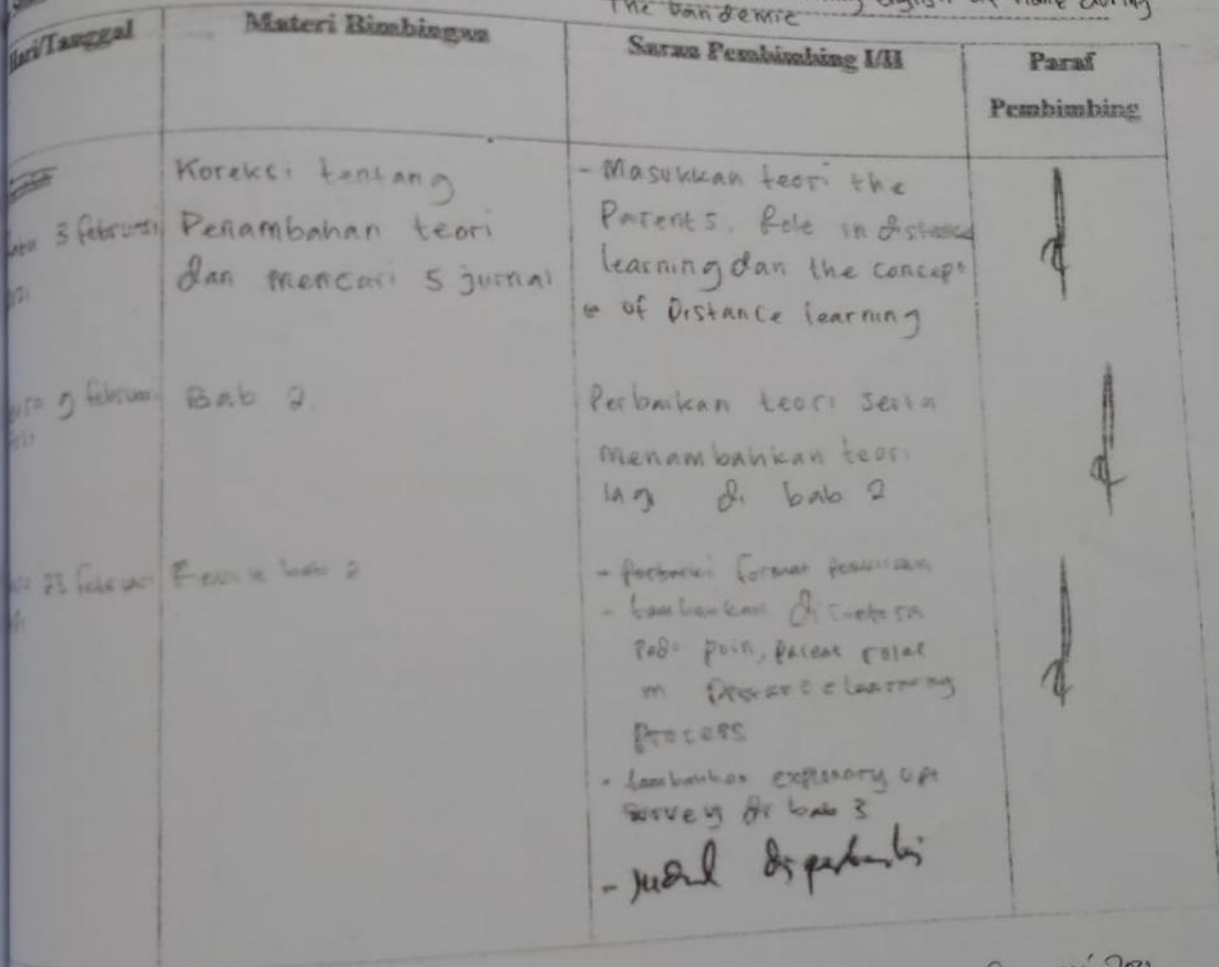 English at home during
The pandemic
Hari/Tanggal
Materi Bimbingan
Saran Pembimbing I/II
Paraf
Pembimbing
3 februari
Koreksi tentang
Penambahan teori
dan mencari 5 jurnal
- Masukkan teori the
Parents, Role in distance
learning dan the concept
of Distance learning
9 februari
Bab 2
Perbaikan teori serta
menambahkan teori
lagi di bab 2
23 februari
bab 2
- Perbaiki format penulisan
- tambahkan di
pada poin, parent roles
in Distance learning
process
- tambahkan
survey di bab 3
- judul diperbaiki